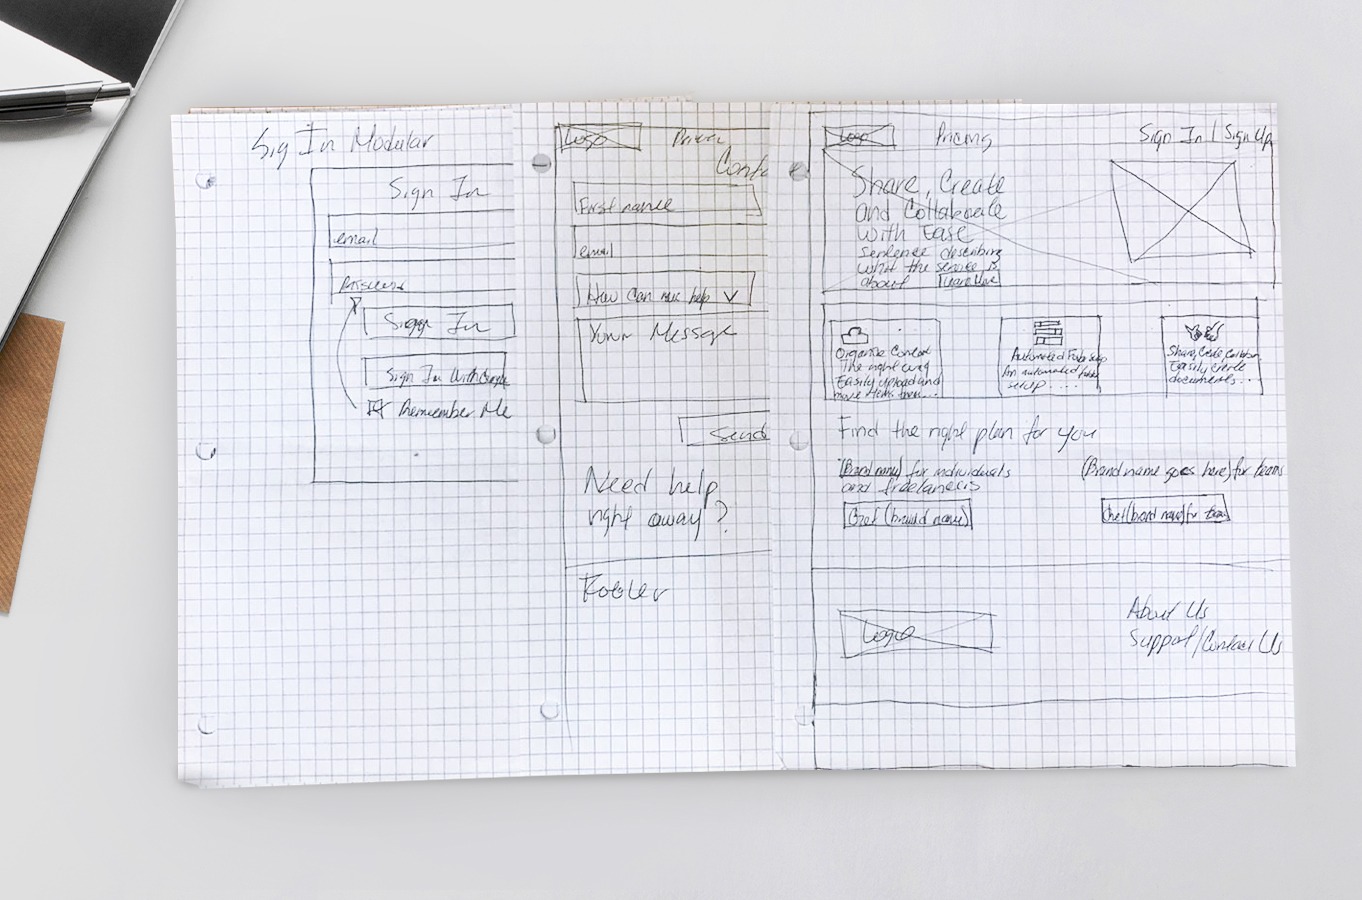 Sig In Modular
Sign In
email
Password
Sign In
Sign In With Google
Remember Me
Logo
Pricing
Conta
First name
email
How Can we help
Your Message
Send
Need help
right away?
Footer
Logo
Pricing
Sign In | Sign Up
Share, Create
and Collaborate
with Ease
sentence describing
what the service is
about
Learn More
Organize Content
The right way
Easily upload and
move items
Automated
An automated
setup.....
Share, Create
Easily create
documents...
Find the right plan for you
(Brand name) for individuals
and freelancers
Get (brand name)
(Brand name goes here) for teams
Get (brand name) for teams
Logo
About Us
Support/Contact Us